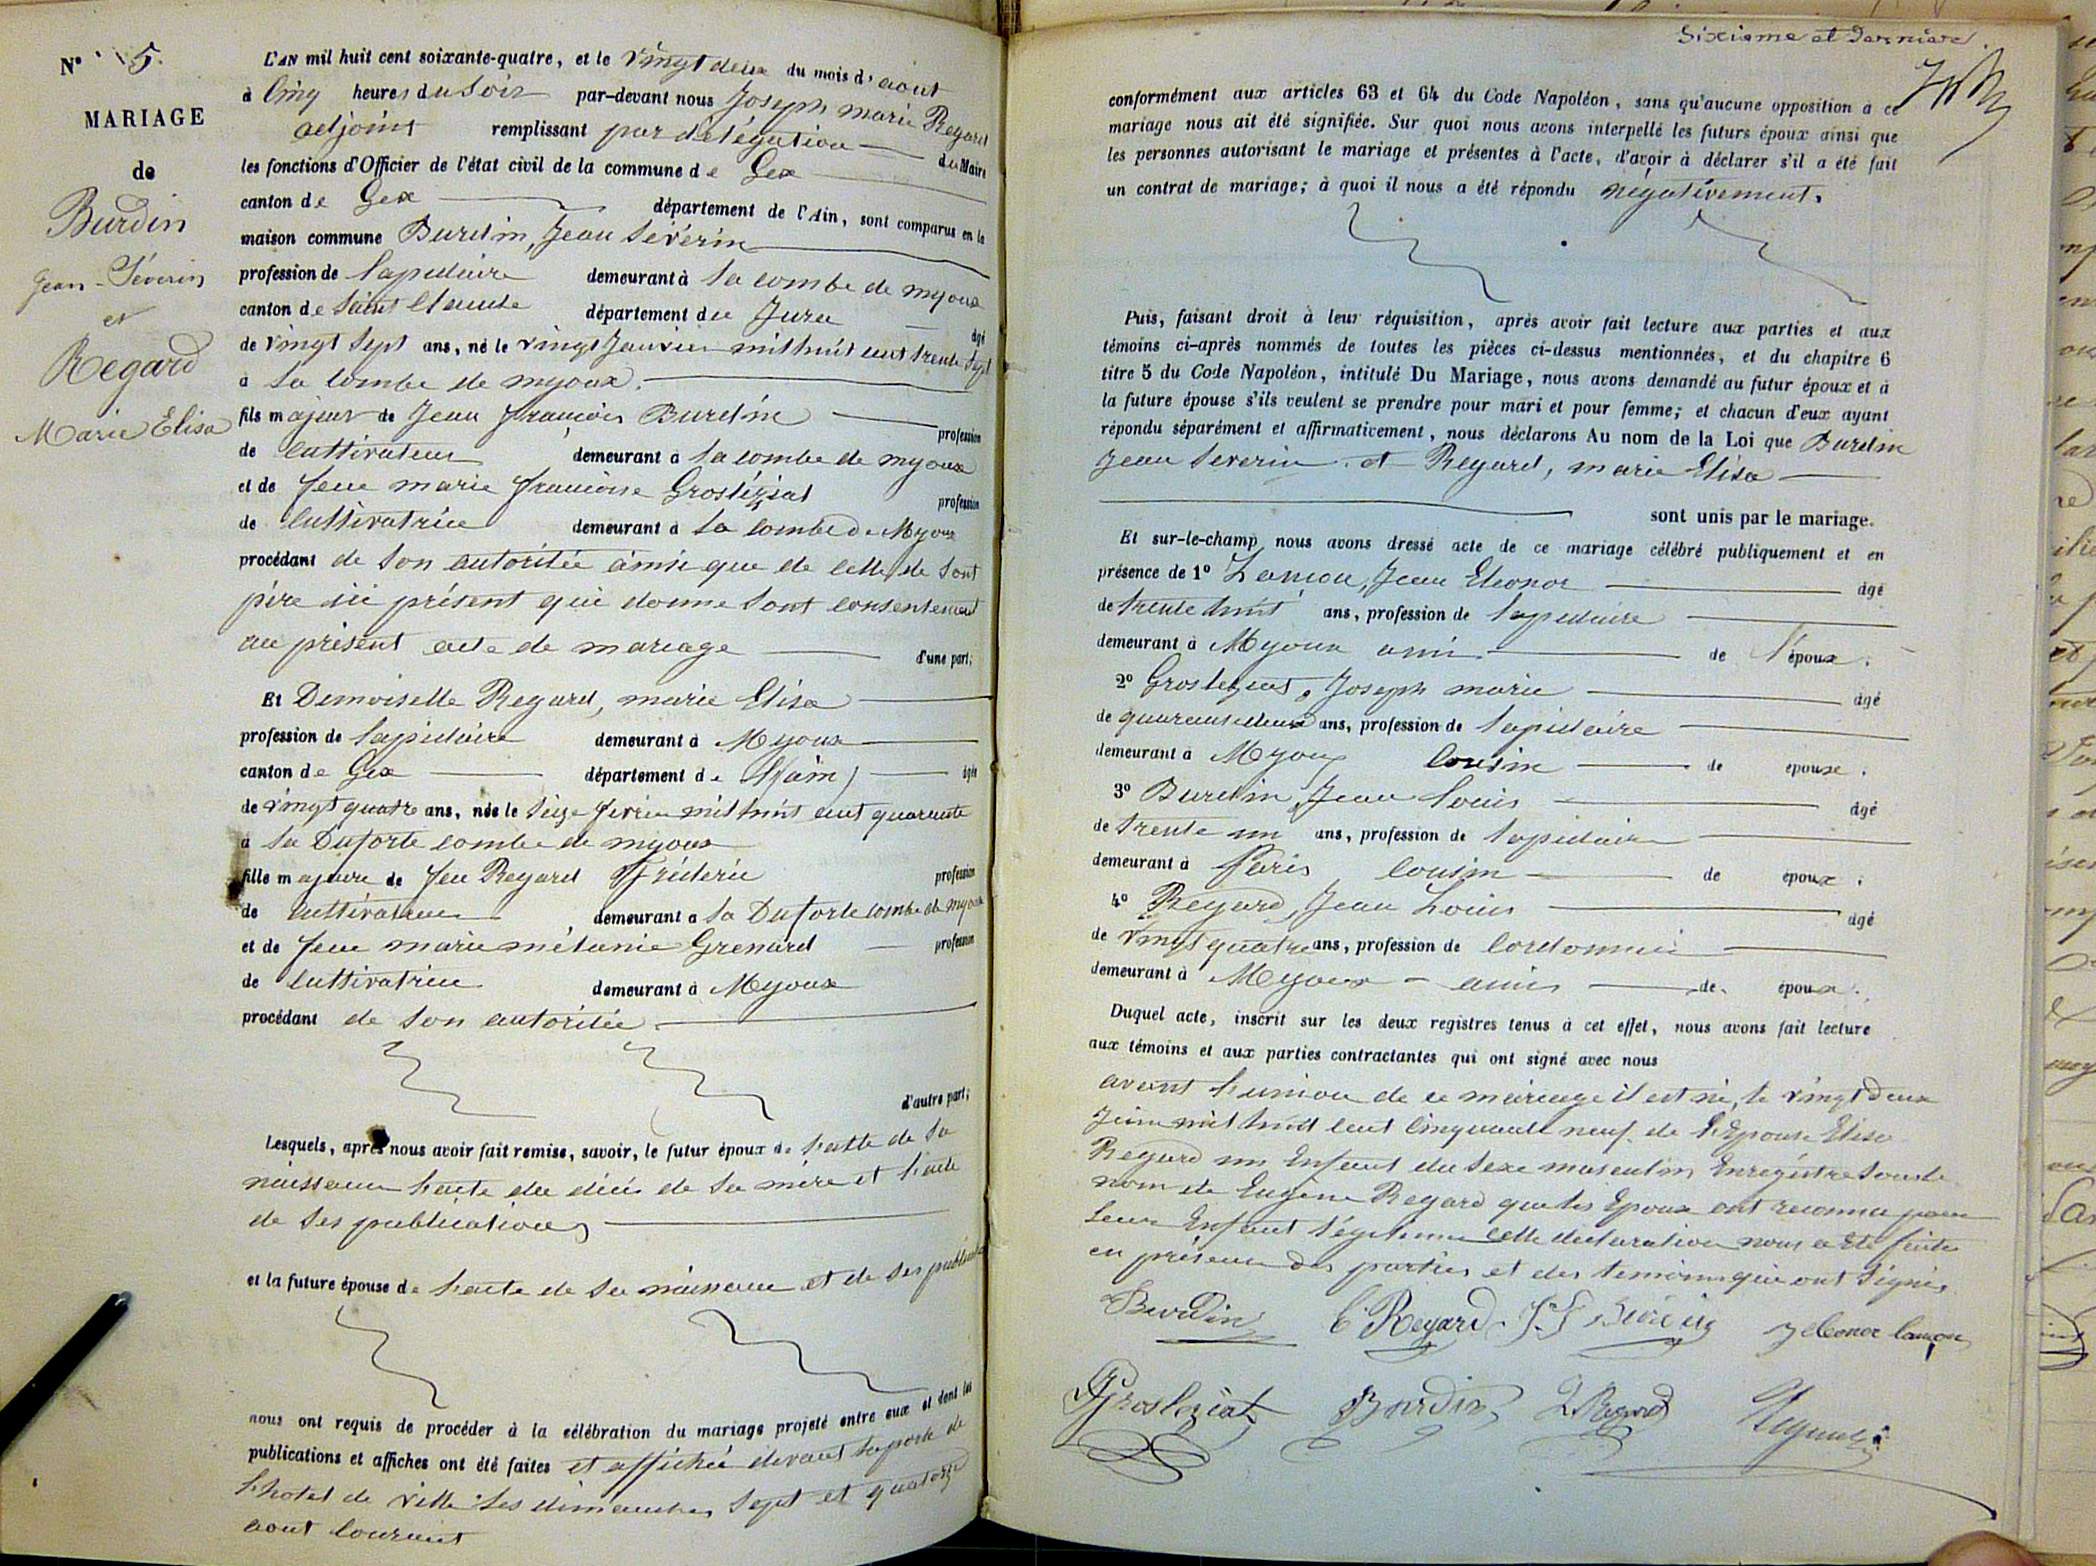 N° 5.
MARIAGE
de
Burdin
Jean-Séverin
et
Regard
Marie Elisa
L'AN mil huit cent soixante-quatre, et le vingt deux du mois d'aout
à Cinq heures du Soir par-devant nous Joseph marie Regard
adjoint remplissant par délégation du Maire
les fonctions d'Officier de l'état civil de la commune de Gex
canton de Gex département de l'Ain, sont comparus en la
maison commune Burdin, Jean Sévérin
profession de Lapidaire demeurant à la combe de myoux
canton de Saint Claude département du Jura âgé
de vingt Sept ans, né le vingt Janvier mil huit cent trente Sept
à la Combe de myoux.
fils majeur de Jean François Burdin profession
de Cultivateur demeurant à la combe de myoux
et de feue marie françoise Grosféziat profession
de Cultivatrice demeurant à la Combe de Myoux
procédant de son autoritée ainsi que de celle de Sont
père ici présent qui donne Sont Consentement
au présent acte de mariage d'une part;
Et Demoiselle Regard, marie Elisa
profession de lapidaire demeurant à Myoux
canton de Gex département de (l'ain) âgée
de vingt quatre ans, née le Seize février mil huit cent quarante
à la Duforte combe de myoux
fille majeure de feu Regard Fréderic profession
de Cultivateur demeurant à la Duforte combe de Myoux
et de feue marie mélanie Grenard profession
de Cultivatrice demeurant à Myoux
procédant de Son autoritée
d'autre part;
Lesquels, après nous avoir fait remise, savoir, le futur époux de l'acte de Sa
naissance l'acte du décès de Sa mère et l'acte
de Ses publications
et la future épouse de l'acte de Sa naissance et de Ses publications
nous ont requis de procéder à la célébration du mariage projeté entre eux et dont les
publications et affiches ont été faites et affiché devant la porte de
l'hotel de ville les dimanches Sept et quatorze
aout Courant
Sixième et Dernière.
conformément aux articles 63 et 64 du Code Napoléon, sans qu'aucune opposition à ce
mariage nous ait été signifiée. Sur quoi nous avons interpellé les futurs époux ainsi que
les personnes autorisant le mariage et présentes à l'acte, d'avoir à déclarer s'il a été fait
un contrat de mariage; à quoi il nous a été répondu négativement.
Puis, faisant droit à leur réquisition, après avoir fait lecture aux parties et aux
témoins ci-après nommés de toutes les pièces ci-dessus mentionnées, et du chapitre 6
titre 5 du Code Napoléon, intitulé Du Mariage, nous avons demandé au futur époux et à
la future épouse s'ils veulent se prendre pour mari et pour femme; et chacun d'eux ayant
répondu séparément et affirmativement, nous déclarons Au nom de la Loi que Burdin
Jean Severin et Regard, marie Elisa
sont unis par le mariage.
Et sur-le-champ nous avons dressé acte de ce mariage célébré publiquement et en
présence de 1° Lançon, Jean Eleonor âgé
de trente huit ans, profession de lapidaire
demeurant à Myoux ami de l'époux.
2° Grosfeziat, Joseph marie âgé
de quarante deux ans, profession de lapidaire
demeurant à Myoux Cousin de epouse.
3° Burdin, Jean Louis âgé
de trente un ans, profession de lapidaire
demeurant à Paris Cousin de époux.
4° Regard, Jean Louis âgé
de vingt quatre ans, profession de Cordonnier
demeurant à Myoux - amis de époux.
Duquel acte, inscrit sur les deux registres tenus à cet effet, nous avons fait lecture
aux témoins et aux parties contractantes qui ont signé avec nous
avant l'union de ce mariage il est né, le vingt Deux
Juin mil huit Cent Cinquante neuf de l'Epouse Elisa
Regard un Enfant du Sexe masculin Enregistre Sous le
nom de Eugène Regard que les Epoux ont reconnu pour
Leur Enfant légitime Cette déclaration nous a été faite
en présence des parties et des temoins qui ont Signés
Burdin E Regard J f Burdin J eleonor lançon
Grosfeziat Burdin L Regard Regard